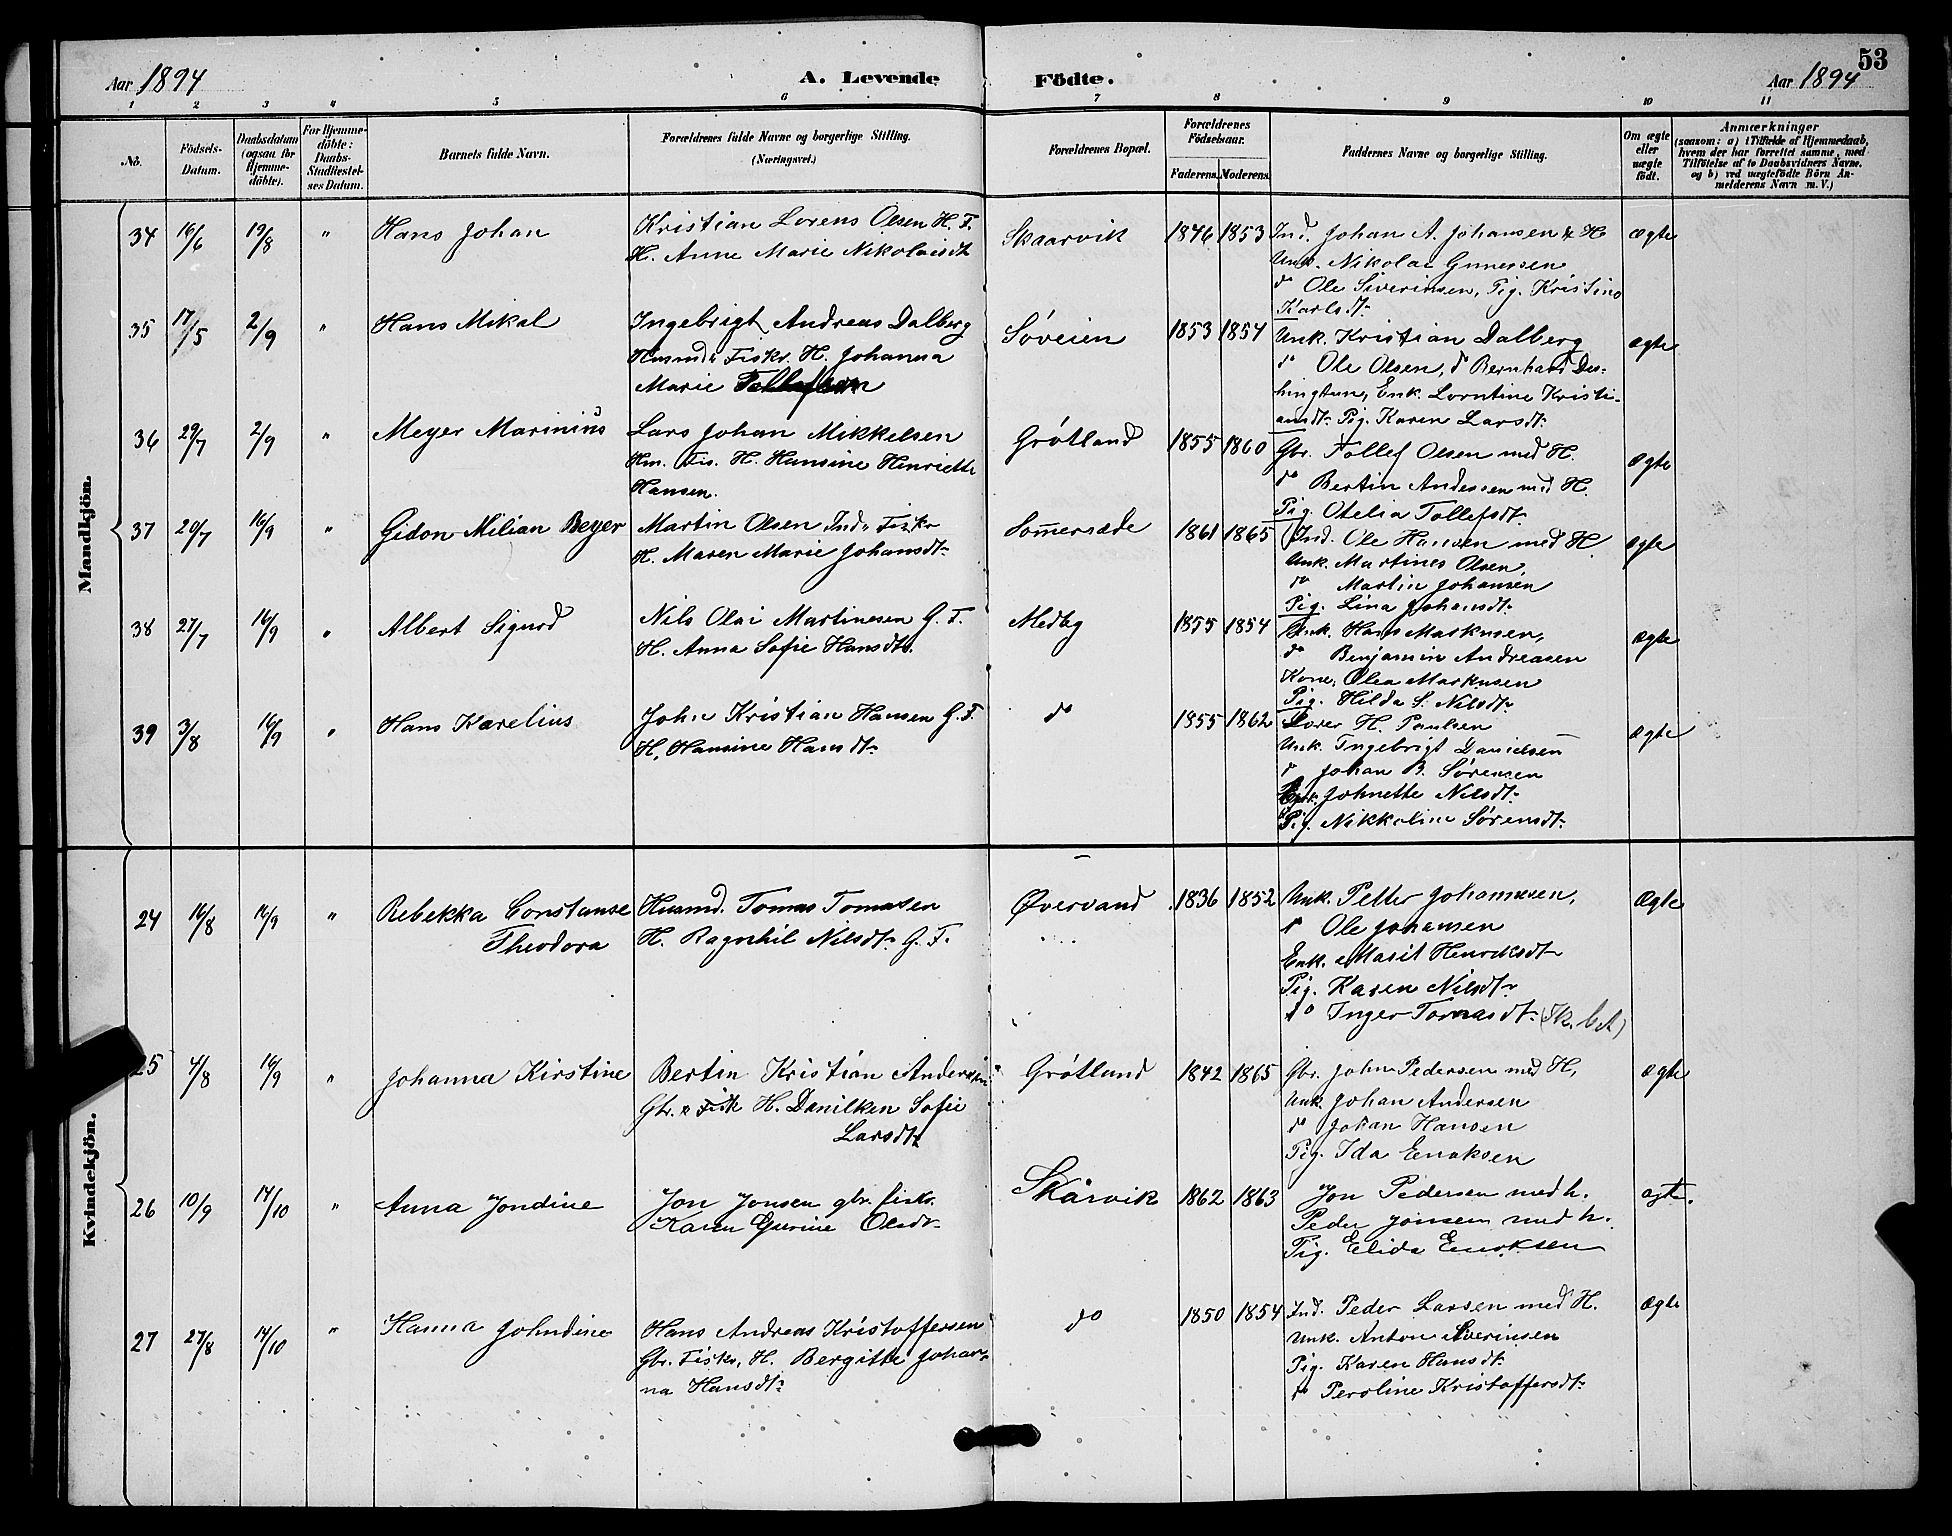 53
Aar 1894
A. Levende Födte.
Aar 1894
1 2 3 4 5 6 7 8 9 10 11
No.
Födsels-
Datum.
Daabsdatum
(ogsaa for
Hjemme-
döbte).
For Hjemme-
döbte:
Daabs-
Stadfestel-
ses Datum.
Barnets fulde Navn.
Forældrenes fulde Navne og borgerlige Stilling.
(Næringsvei.)
Forældrenes Bopæl.
Forældrenes
Födselsaar.
Faderens. Moderens.
Faddernes Navne og borgerlige Stilling.
Om ægte
eller
uægte
født.
Anmærkninger
(saasom: a) i Tilfælde af Hjemmedaab,
hvem der har forrettet samme, med
Tilföielse af to Daabsvidners Navne,
og b) ved uægtefödte Börn An-
melderens Navn m. V.)
Mandkjön.
34 16/6 19/8 " Hans Johan
Kristian Lorens Olsen H. F.
H. Anne Marie Nikolaisdt
Skaarvik 1846 1853
Ind. Johan A. Johansen & H
Unk. Nikolai
do Ole Siverinsen, Pig. Kristine
Karlsdt.
ægte
35 17/5 2/9 " Hans Mikal
Ingebrigt Andreas Dalberg
Husmd & Fiskr. H. Johanna
Marie
Søveien 1853 1854
Unk. Kristian Dalberg
do Ole Olsen, do Bernhard
Enk. Lorntine Kristi-
ansdt. Pig. Karen Larsdt.
ægte
36 29/7 2/9 " Meyer Marinius
Lars Johan Mikkelsen
Hm. Fis. H. Hansine Henriette
Hansen.
Grøtland 1855 1860
Gbr. Tollef Olsen med H.
do Bertin Andersen med H.
Pig. Otelia Tollefsdt.
ægte
37 20/7 16/9 " Gidon Milian Beyer
Martin Olsen Ind & Fiskr
H. Maren Marie Johansdt.
Som̄ersæde 1861 1865
Ind. Ole Hansen med H.
Unk. Martines Olsen,
do Martin Johansen
Pig. Lina Johansdt.
ægte
38 27/7 16/9 " Albert Sigurd
Nils Olai Martinesen G. F.
H. Anna Sofie Hansdt.
Medby 1855 1854
Unk. Hans Markusen,
do Benjamin Andreasen
Kone, Olea Markusen
Pig. Hilda S. Nilsdt.
ægte
39 3/8 16/9 " Hans Karelius
John Kristian Hansen G. F.
H. Hansine Hansdt.
do 1855 1862
H. Paulsen
Unk. Ingebrigt Danielsen
do Johan B. Sørensen
Johnette Nilsdt.
Pig. Nikkoline Sørensdt.
ægte
Kvindekjön.
24 16/8 16/9 " Rebekka Constanse
Theodora
Husmd. Tomas Tomasen
H. Ragnhil Nilsdt. G. F.
Øvervand 1836 1852
Unk. Petter Johannesen,
do Ole Johansen
Enk. Marit Henriksdt
Pig. Karen Nilsdt.
do Inger Tomasdt.
Ægte
25 4/8 16/9 " Johanna Kirstine
Bertin Kristian Andersen
Gbr. & Fisk H. Danilken Sofie
Larsdt
Grøtland 1842 1865
Gbr. John Pedersen med H,
Unk. Johan Andersen
do Johan Hansen
Pig. Ida Enoksen
ægte
26 10/9 14/10 " Anna Jondine
Jon Jonsen gbr. fisk.
Karen Gurine Olsdt.
Skårvik 1862 1863
Jon Pedersen med h.
Peder Jonsen med h.
Pig. Elida Enoksen
ægt.
27 27/8 14/10 " Hanna Johndine
Hans Andreas Kristoffersen
Gbr. Fiskr, H. Bergitte Johan-
na Hansdt.
do 1850 1854
Ind. Peder Larsen med H.
Unk. Anton Siverinsen
Pig. Karen Hansdt.
do Peroline Kristoffersdt.
Ægte